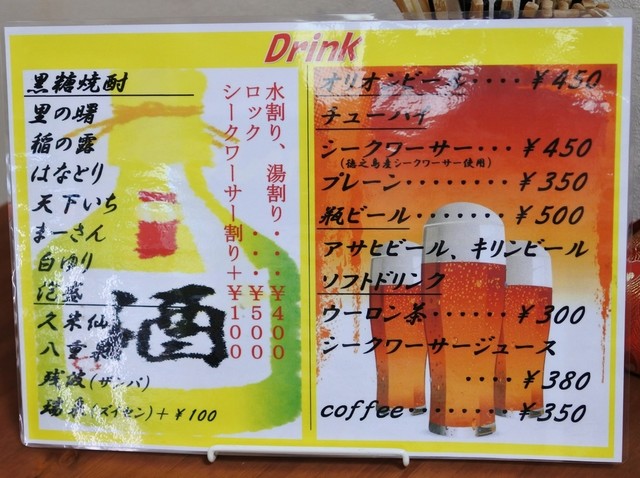 Drink
黒糖焼酎
里の曙
稲の露
はなとり
天下いち
まーさん
白ゆり
泡盛
久米仙
八重泉
残波(ザンパ)
瑞泉(ズイセン)+¥100
水割り、湯割り・・・¥400
ロック・・・・¥500
シークワーサー割り+¥100
酒
オリオンビール・・・・¥450
チューハイ
シークワーサー・・・¥450
(徳之島産シークワーサー使用)
プレーン・・・・・・・・¥350
瓶ビール・・・・・・・¥500
アサヒビール、キリンビール
ソフトドリンク
ウーロン茶・・・・・・¥300
シークワーサージュース
・・・・¥380
coffee・・・・・・・・¥350